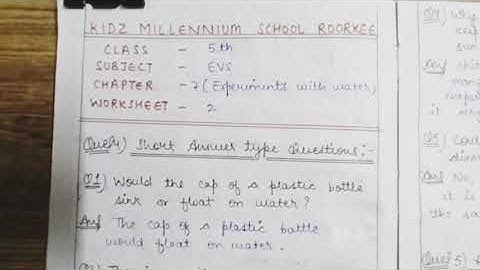 KIDZ MILLENNIUM SCHOOL ROORKEE
CLASS - 5th
SUBJECT - EVS
CHAPTER - 7 (Experiments with water)
WORKSHEET - 2
Que4) Short Answer type Questions:-
Q1) Would the cap of a plastic bottle
sink or float on water?
Ans The cap of a plastic bottle
would float on water.
Why
Ans
Q5) Coul
Ans No,
it is
the sa
Que5)